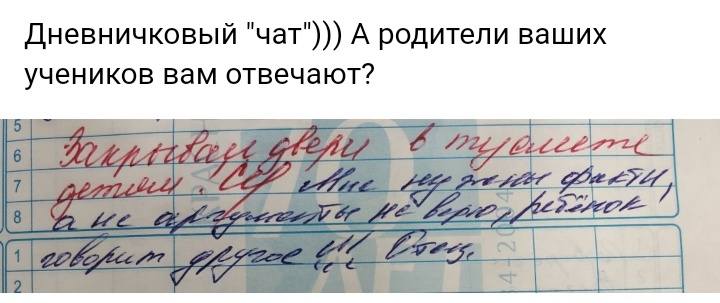 Дневничковый "чат"))) А родители ваших
учеников вам отвечают?
5
6 Закрывал двери в туалете
7 детям. Мне нужны факты,
8 а не аргументы не верю, ребёнок
1 говорит другое !!! Отец.
2